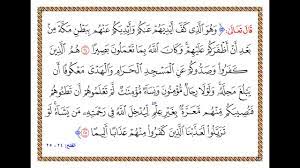 قَالَ تَعَالَى: ﴿وَهُوَ ٱلَّذِى كَفَّ أَيْدِيَهُمْ عَنكُمْ وَأَيْدِيَكُمْ عَنْهُم بِبَطْنِ مَكَّةَ مِنۢ
بَعْدِ أَنْ أَظْفَرَكُمْ عَلَيْهِمْ وَكَانَ ٱللَّهُ بِمَا تَعْمَلُونَ بَصِيرًا ٢٤ هُمُ ٱلَّذِينَ
كَفَرُوا۟ وَصَدُّوكُمْ عَنِ ٱلْمَسْجِدِ ٱلْحَرَامِ وَٱلْهَدْىَ مَعْكُوفًا أَن
يَبْلُغَ مَحِلَّهُۥ وَلَوْلَا رِجَالٌ مُّؤْمِنُونَ وَنِسَآءٌ مُّؤْمِنَٰتٌ لَّمْ تَعْلَمُوهُمْ أَن تَطَـُٔوهُمْ
فَتُصِيبَكُم مِّنْهُم مَّعَرَّةٌۢ بِغَيْرِ عِلْمٍ لِّيُدْخِلَ ٱللَّهُ فِى رَحْمَتِهِۦ مَن يَشَآءُ لَوْ
تَزَيَّلُوا۟ لَعَذَّبْنَا ٱلَّذِينَ كَفَرُوا۟ مِنْهُمْ عَذَابًا أَلِيمًا ٢٥﴾
الفتح: ٢٤ - ٢٥